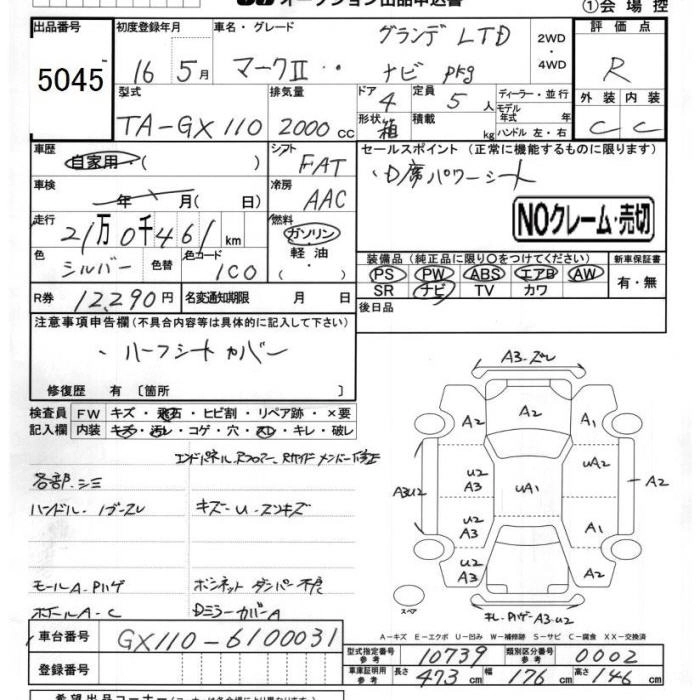 オークション出品申込書
①会場控
出品番号 初度登録年月 車名・グレード グランデ LTD 2WD ・ 4WD 評価点
5045 16 5月 マークⅡ・・ ナビ pkg R
型式 排気量 ドア 4 定員 5人 ディーラー・並行 外装 内装
TA-GX110 2000cc 形状 箱 積載 kg モデル年式 年 ハンドル 左・右 C C
車歴 自家用・( ) シフト FAT セールスポイント (正常に機能するものに限ります)
車検 年 月( 日) 冷房 AAC ・D席パワーシート
走行 21万0千461km 燃料 ガソリン 軽油 ・( ) NOクレーム・売切
色 シルバー 色替 色コード 1C0 装備品(純正品に限り○をつけてください) 新車保証書
PS PW ABS エアB AW 有・無
SR ナビ TV カワ
R券 12,290円 名変通知期限 月 日 後日品
注意事項申告欄(不具合内容等は具体的に記入して下さい)
・ハーフシートカバー
修復歴 有 〔箇所 〕
検査員 FW キズ・飛石・ヒビ割・リペア跡・×要
記入欄 内装 キズ・汚レ・コゲ・穴・スレ・キレ・破レ
各部.シミ
キズ-U-スンキズ
モールA.Pハゲ ボンネットダンパー不良
Dミラーカバー A
A3-ズレ
A2 A2 A1
U2 A3 UA1 UA2 A2
A3U2 U2 A3 A1
U2 A3 A2
スペア
A-キズ E-エクボ U-凹み W-補修跡 S-サビ C-腐食 XX-交換済
車台番号 GX110-6100031
型式指定番号 参考 10739 類別区分番号 参考 0002
登録番号 車庫証明用 参考 長さ 473cm 幅 176cm 高さ 146cm
希望出品コーナー